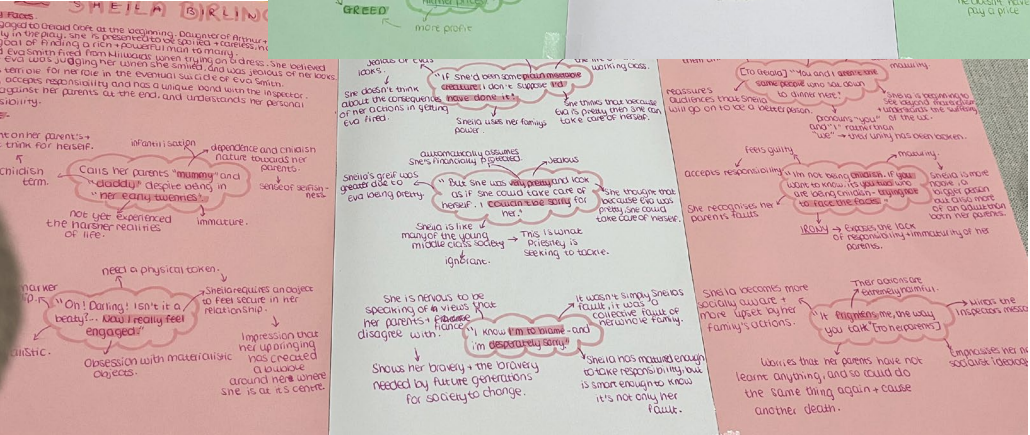 SHEILA BIRLIN
GREED
more profit
pay a price
at the beginning. Daughter of Arthur +
in the play, she is presented to be spoiled + careless,
goal of finding a rich + powerful man to marry.
Eva Smith fired from Milwards when trying on a dress. She believed
Eva was judging her when she smiled, and was jealous of her looks.
terrible for her role in the eventual suicide of Eva Smith.
accepts responsibility and has a unique bond with the inspector.
against her parents at the end, and understands her personal
nt on her parents +
think for herself.
infantilisation
dependence and childish
nature towards her
parents.
childish
term.
Calls her parents "mummy" and
"daddy" despite being in
her early twenties.
sense of selfish-
ness.
not yet experienced
the harsher realities
of life.
immature.
need a physical token.
marker
"Oh! Darling! Isn't it a
beaty?.. Now I really feel
engaged!"
Sheila requires an object
to feel secure in her
relationship.
alistic.
Obsession with materialistic
objects.
Impression that
her upbringing
has created
a bubble
around her where
she is at its centre.
looks.
working class.
"If she'd been some plain miserable
creature, I don't suppose I'd
have done it."
She doesn't think
about the consequences
of her actions in getting
Eva fired.
Sheila uses her family's
power.
She thinks that because
Eva is pretty, then she can
take care of herself.
automatically assumes
She's financially protected.
Jealous
Sheila's greif was
greater due to
Eva being pretty
"But she was very pretty and look
as if she could take care of
herself. I couldn't be sorry for
her."
She thought that
because Eva was
pretty, she could
take care of herself.
Sheila is like
many of the young
middle class society
ignorant.
This is what
Priestley is
seeking to tackle.
She is nervous to be
speaking of views that
her parents +
fiance
disagree with.
It wasn't simply Sheila's
fault, it was a
collective fault of
her whole family.
"I know I'm to blame - and
I'm desperately sorry"
Shows her bravery + the bravery
needed by future generations
for society to change.
Sheila has matured enough
to take responsibility, but
is smart enough to know
it's not only her
fault.
[To Gerald] "You and I aren't the
same people who sat down
to dinner here"
maturity.
reassures
audiences that Sheila
will go on to be a better person.
Sheila is beginning to
pronouns "you"
and "I" rather than
"we" → their unity has been broken.
feels guilty
maturity.
accepts responsibility
"I'm not being childish. If you
want to know, it's you two who
are being childish - trying not
to face the facts."
Sheila is more
of a
bigger person
but also more
of an adult than
both her parents.
She recognises her
parents faults
IRONY → Exposes the lack
of responsibility + immaturity of her
parents.
Sheila becomes more
socially aware +
more upset by her
family's actions.
Their actions are
extremely harmful.
"It frightens me, the way
you talk" [To her parents]
Mirrors the
Inspectors mess
Emphasises her
socialist ideolog
Worries that her parents have not
learnt anything, and so could do
the same thing again + cause
another death.